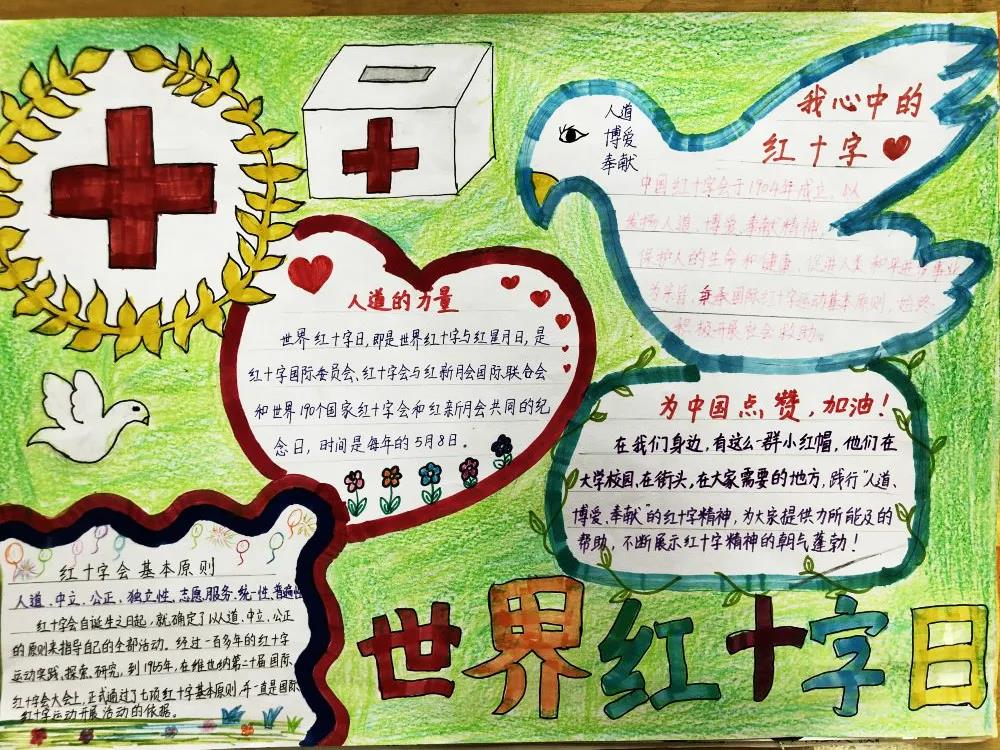 人道
博爱
奉献
我心中的
红十字
中国红十字会于1904年成立，以
发扬人道、博爱、奉献精神，
保护人的生命和健康，促进人类和平进步事业
为宗旨，秉承国际红十字运动基本原则，始终
积极开展社会救助。
人道的力量
世界红十字日，即是世界红十字与红星月日，是
红十字国际委员会、红十字会与红新月会国际联合会
和世界190个国家红十字会和红新月会共同的纪
念日，时间是每年的5月8日。
为中国点赞，加油！
在我们身边，有这么一群小红帽，他们在
大学校园、在街头，在大家需要的地方，践行“人道、
博爱、奉献”的红十字精神，为大家提供力所能及的
帮助，不断展示红十字精神的朝气蓬勃！
红十字会基本原则
人道、中立、公正、独立性、志愿服务、统一性、普遍性
红十字会自诞生之日起，就确定了以人道、中立、公正
的原则来指导自己的全部活动。经过一百多年的红十字
运动实践，探索、研究，到1965年，在维也纳第二十届国际
红十字会大会上，正式通过了七项红十字基本原则，并一直是国际
红十字运动开展活动的依据。
世界红十字日